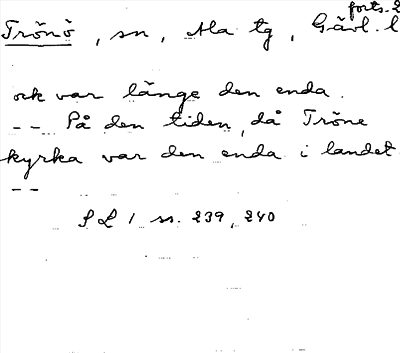 forts. 2
Trönö, sn, Ala tg, Gävl. l
och var länge den enda.
-- På den tiden, då Tröne
kyrka var den enda i landet
--
SL 1 ss. 239, 240